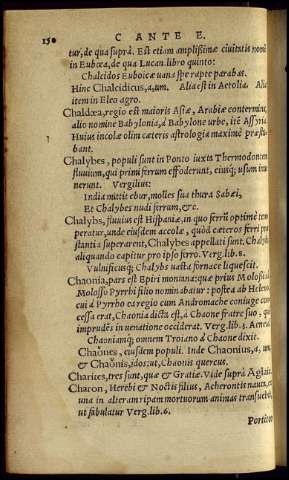 150 C ANTE E.
tur, de qua suprà. Est etiam amplissimæ ciuitatis nomē
in Eubœa, de qua Lucan. libro quinto:
Chalcidos Euboicæ uana spe rapte parabas.
Hinc Chalcidicus, a, um. Alia est in Aetolia. Alia
item in Eleo agro.
Chaldæa, regio est maioris Asiæ, Arabiæ contermina,
alio nomine Babylonia, à Babylone urbe, itē Assyria
Huius incolæ olim cæteris astrologia maximè præsta
bant.
Chalybes, populi sunt in Ponto iuxta Thermodontem
fluuium, qui primi ferrum effoderunt, eiusq; usum inue
nerunt. Vergilius:
India mittit ebur, molles sua thura Sabæi,
Et Chalybes nudi ferrum, & c.
Chalybs, fluuius est Hispaniæ, in quo ferrū optimè tem
peratur, unde eiusdem accolæ, quòd cæteros ferri præ
stantia superarent, Chalybes appellati sunt. Chalybs
aliquando capitur pro ipso ferro. Verg. lib. 8.
Vulnificusq; Chalybs uasta fornace liquescit.
Chaonia, pars est Epiri montana: quæ prius Molosia à
Molosso Pyrrhi filio nominabatur: postea ab Heleno,
cui à Pyrrho ea regio cum Andromache coniuge con
cessa erat, Chaonia dicta est, à Chaone fratre suo, quē
imprudēs in uenatione occiderat. Verg. lib. 3. Aeneid.
Chaoniamq; omnem Troiano à Chaone dixit.
Chaones, eiusdem populi. Inde Chaonius, a, um,
& Chaonis, idos: ut, Chaonis quercus.
Charites, tres sunt, quæ & Gratiæ. Vide suprà Aglaia.
Charon, Herebi & Noctis filius, Acherontis nauta, ex
una in alteram ripam mortuorum animas transuehens,
ut fabulatur Verg. lib. 6.
Portitor